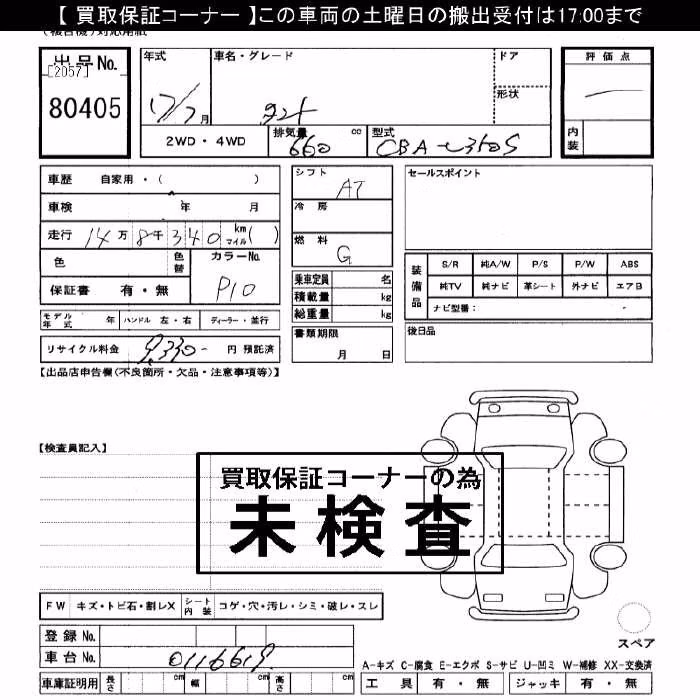 【 買取保証コーナー 】この車両の土曜日の搬出受付は17:00まで
出品No.
[2057]
80405
年式
17/7月
車名・グレード
タント
ドア
形状
評価点
内装
2WD・4WD
排気量 660 cc
型式 CBA-L350S
車歴 自家用・( )
車検 年 月
走行 14万8千340 km マイル( )
色
色替
カラーNo.
P10
保証書 有・無
シフト AT
冷房
燃料 G
乗車定員 名
積載量 kg
総重量 kg
セールスポイント
装備品
S/R 純A/W P/S P/W ABS
純TV 純ナビ 革シート 外ナビ エアB
ナビ型番：
モデル年式 年 ハンドル 左・右 ディーラー・並行
書類期限
月 日
後日品
リサイクル料金 9,330- 円 預託済
【出品店申告欄(不良箇所・欠品・注意事項等)】
【検査員記入】
買取保証コーナーの為
未検査
FW キズ・トビ石・割レX シート内装 コゲ・穴・汚レ・シミ・破レ・スレ
スペア
登録No.
車台No. 0116619
A-キズ C-腐食 E-エクボ S-サビ U-凹ミ W-補修 XX-交換済
車庫証明用 長さ cm 幅 cm 高さ cm
工具 有・無 ジャッキ 有・無